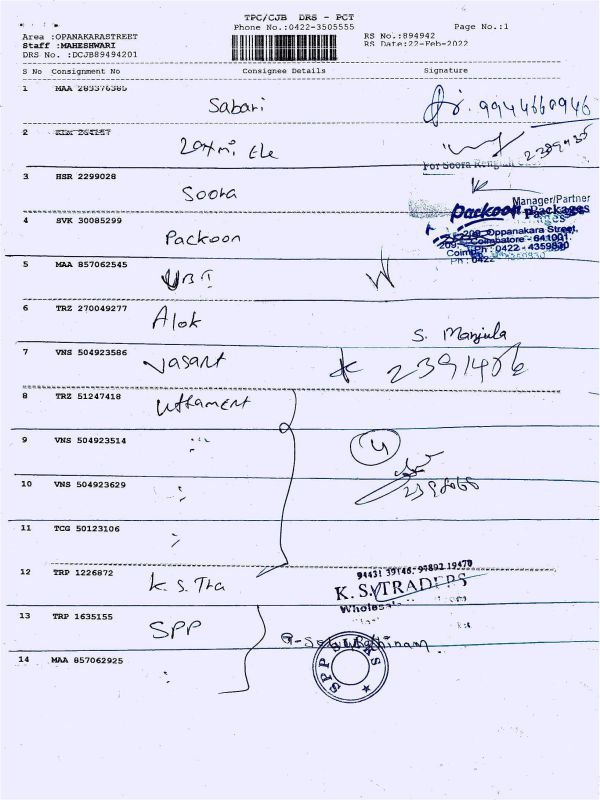 TPC/CJB DRS - PCT
Phone No.:0422-3505555 Page No.:1
Area :OPANAKARASTREET RS No.:894942
Staff :MAHESHWARI RS Date:22-Feb-2022
DRS No. :DCJB89494201
S No Consignment No Consignee Details Signature
1 MAA 283376385
Sabari 9944660946
2
3 HSR 2299028
Soora
Manager/Partner
Packoon Packages
4 SVK 30085299
Packoon
209, Oppanakara Street,
Coimbatore - 641001.
Ph : 0422 - 4359830
5 MAA 857062545
UBI
6 TRZ 270049277
Alok
S. Manjula
7 VNS 504923586
Vasant 2391406
8 TRZ 51247418
Uttament
9 VNS 504923514
"
4
10 VNS 504923629
"
11 TCG 50123106
"
12 TRP 1226872
K.S. Tra
94431 39146, 97892 19470
K. S. TRADERS
Wholesale
13 TRP 1635155
SPP
14 MAA 857062925
"